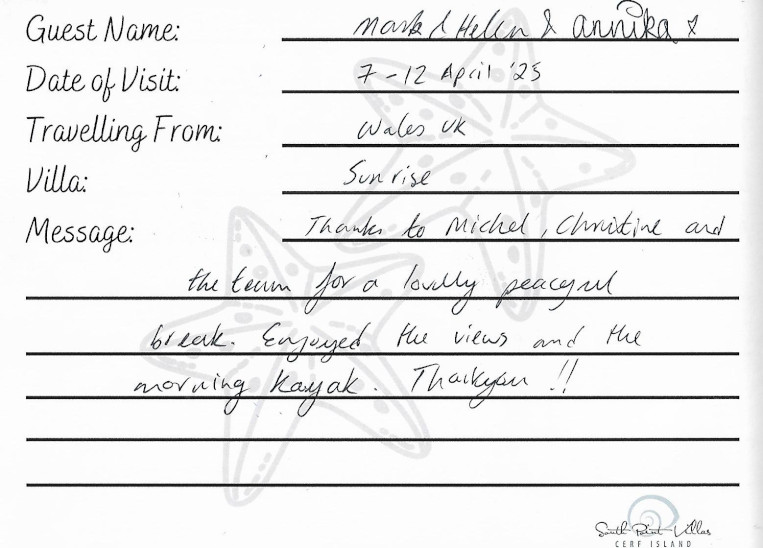 Guest Name: Mark & Helen & Annika x
Date of Visit: 7-12 April '25
Travelling From: Wales UK
Villa: Sunrise
Message: Thanks to Michel, Christine and
the team for a lovelly peaceful
break. Enjoyed the views and the
morning kayak. Thankyou !!
South Point Villas
CERF ISLAND